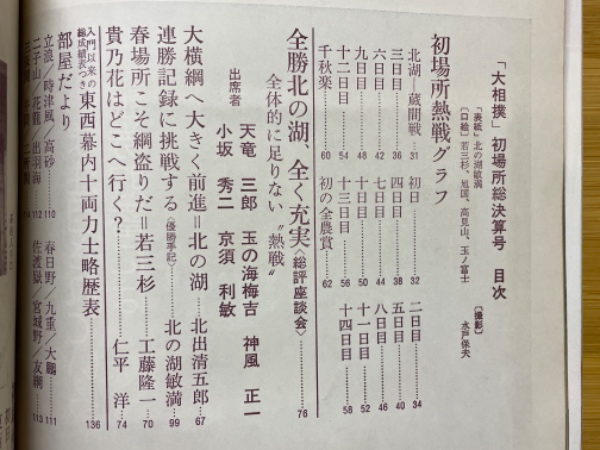 「大相撲」初場所総決算号　目次
〔表紙〕北の湖敏満
〔口絵〕若三杉、旭国、高見山、玉ノ富士
〔撮影〕水戸保夫
初場所熱戦グラフ
北湖―蔵間戦……31　初日……32　二日目……34
三日目……36　四日目……38　五日目……40
六日目……42　七日目……44　八日目……46
九日目……48　十日目……50　十一日目……52
十二日目……54　十三日目……56　十四日目……58
千秋楽……60　初の全農賞……62
全勝北の湖、全く充実〈総評座談会〉……76
全体的に足りない〝熱戦〟
出席者　天竜三郎　玉の海梅吉　神風正一
小坂秀二　京須利敏
大横綱へ大きく前進＝北の湖……北出清五郎……67
連勝記録に挑戦する〈優勝手記〉……北の湖敏満……99
春場所こそ綱盗りだ＝若三杉……工藤隆一……70
貴乃花はどこへ行く？……仁平洋……74
入門以来の総成績表つき　東西幕内十両力士略歴表……136
部屋だより
立浪／時津風／高砂……110　春日野／九重／大鵬……111
二子山／花籠／出羽海……112　佐渡嶽／宮城野／友綱……113